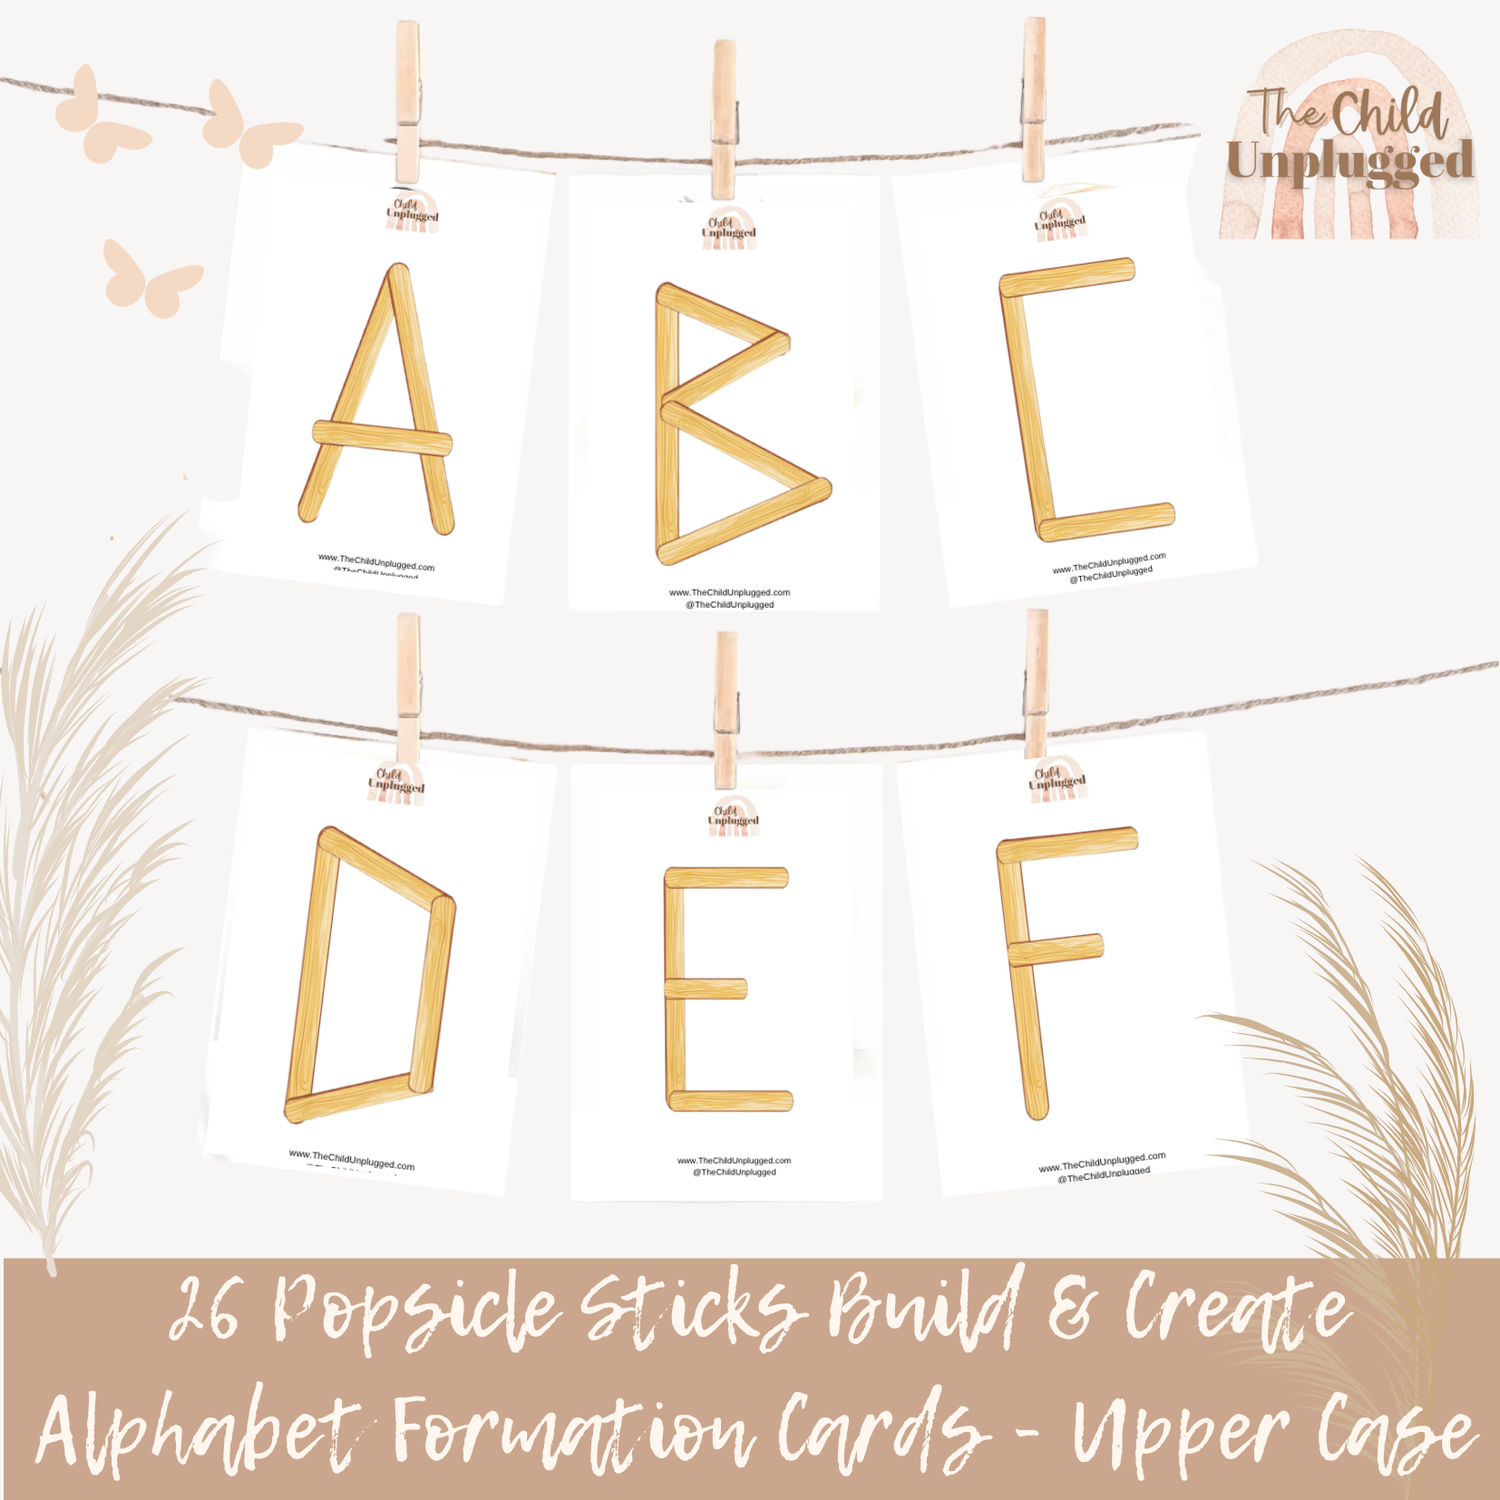 The Child
Unplugged
Child
Unplugged
A
www.TheChildUnplugged.com
@TheChildUnplugged
Child
Unplugged
B
www.TheChildUnplugged.com
@TheChildUnplugged
Child
Unplugged
C
www.TheChildUnplugged.com
@TheChildUnplugged
Child
Unplugged
D
www.TheChildUnplugged.com
Child
Unplugged
E
www.TheChildUnplugged.com
@TheChildUnplugged
Child
Unplugged
F
www.TheChildUnplugged.com
@TheChildUnplugged
26 Popsicle Sticks Build & Create
Alphabet Formation Cards - Upper Case